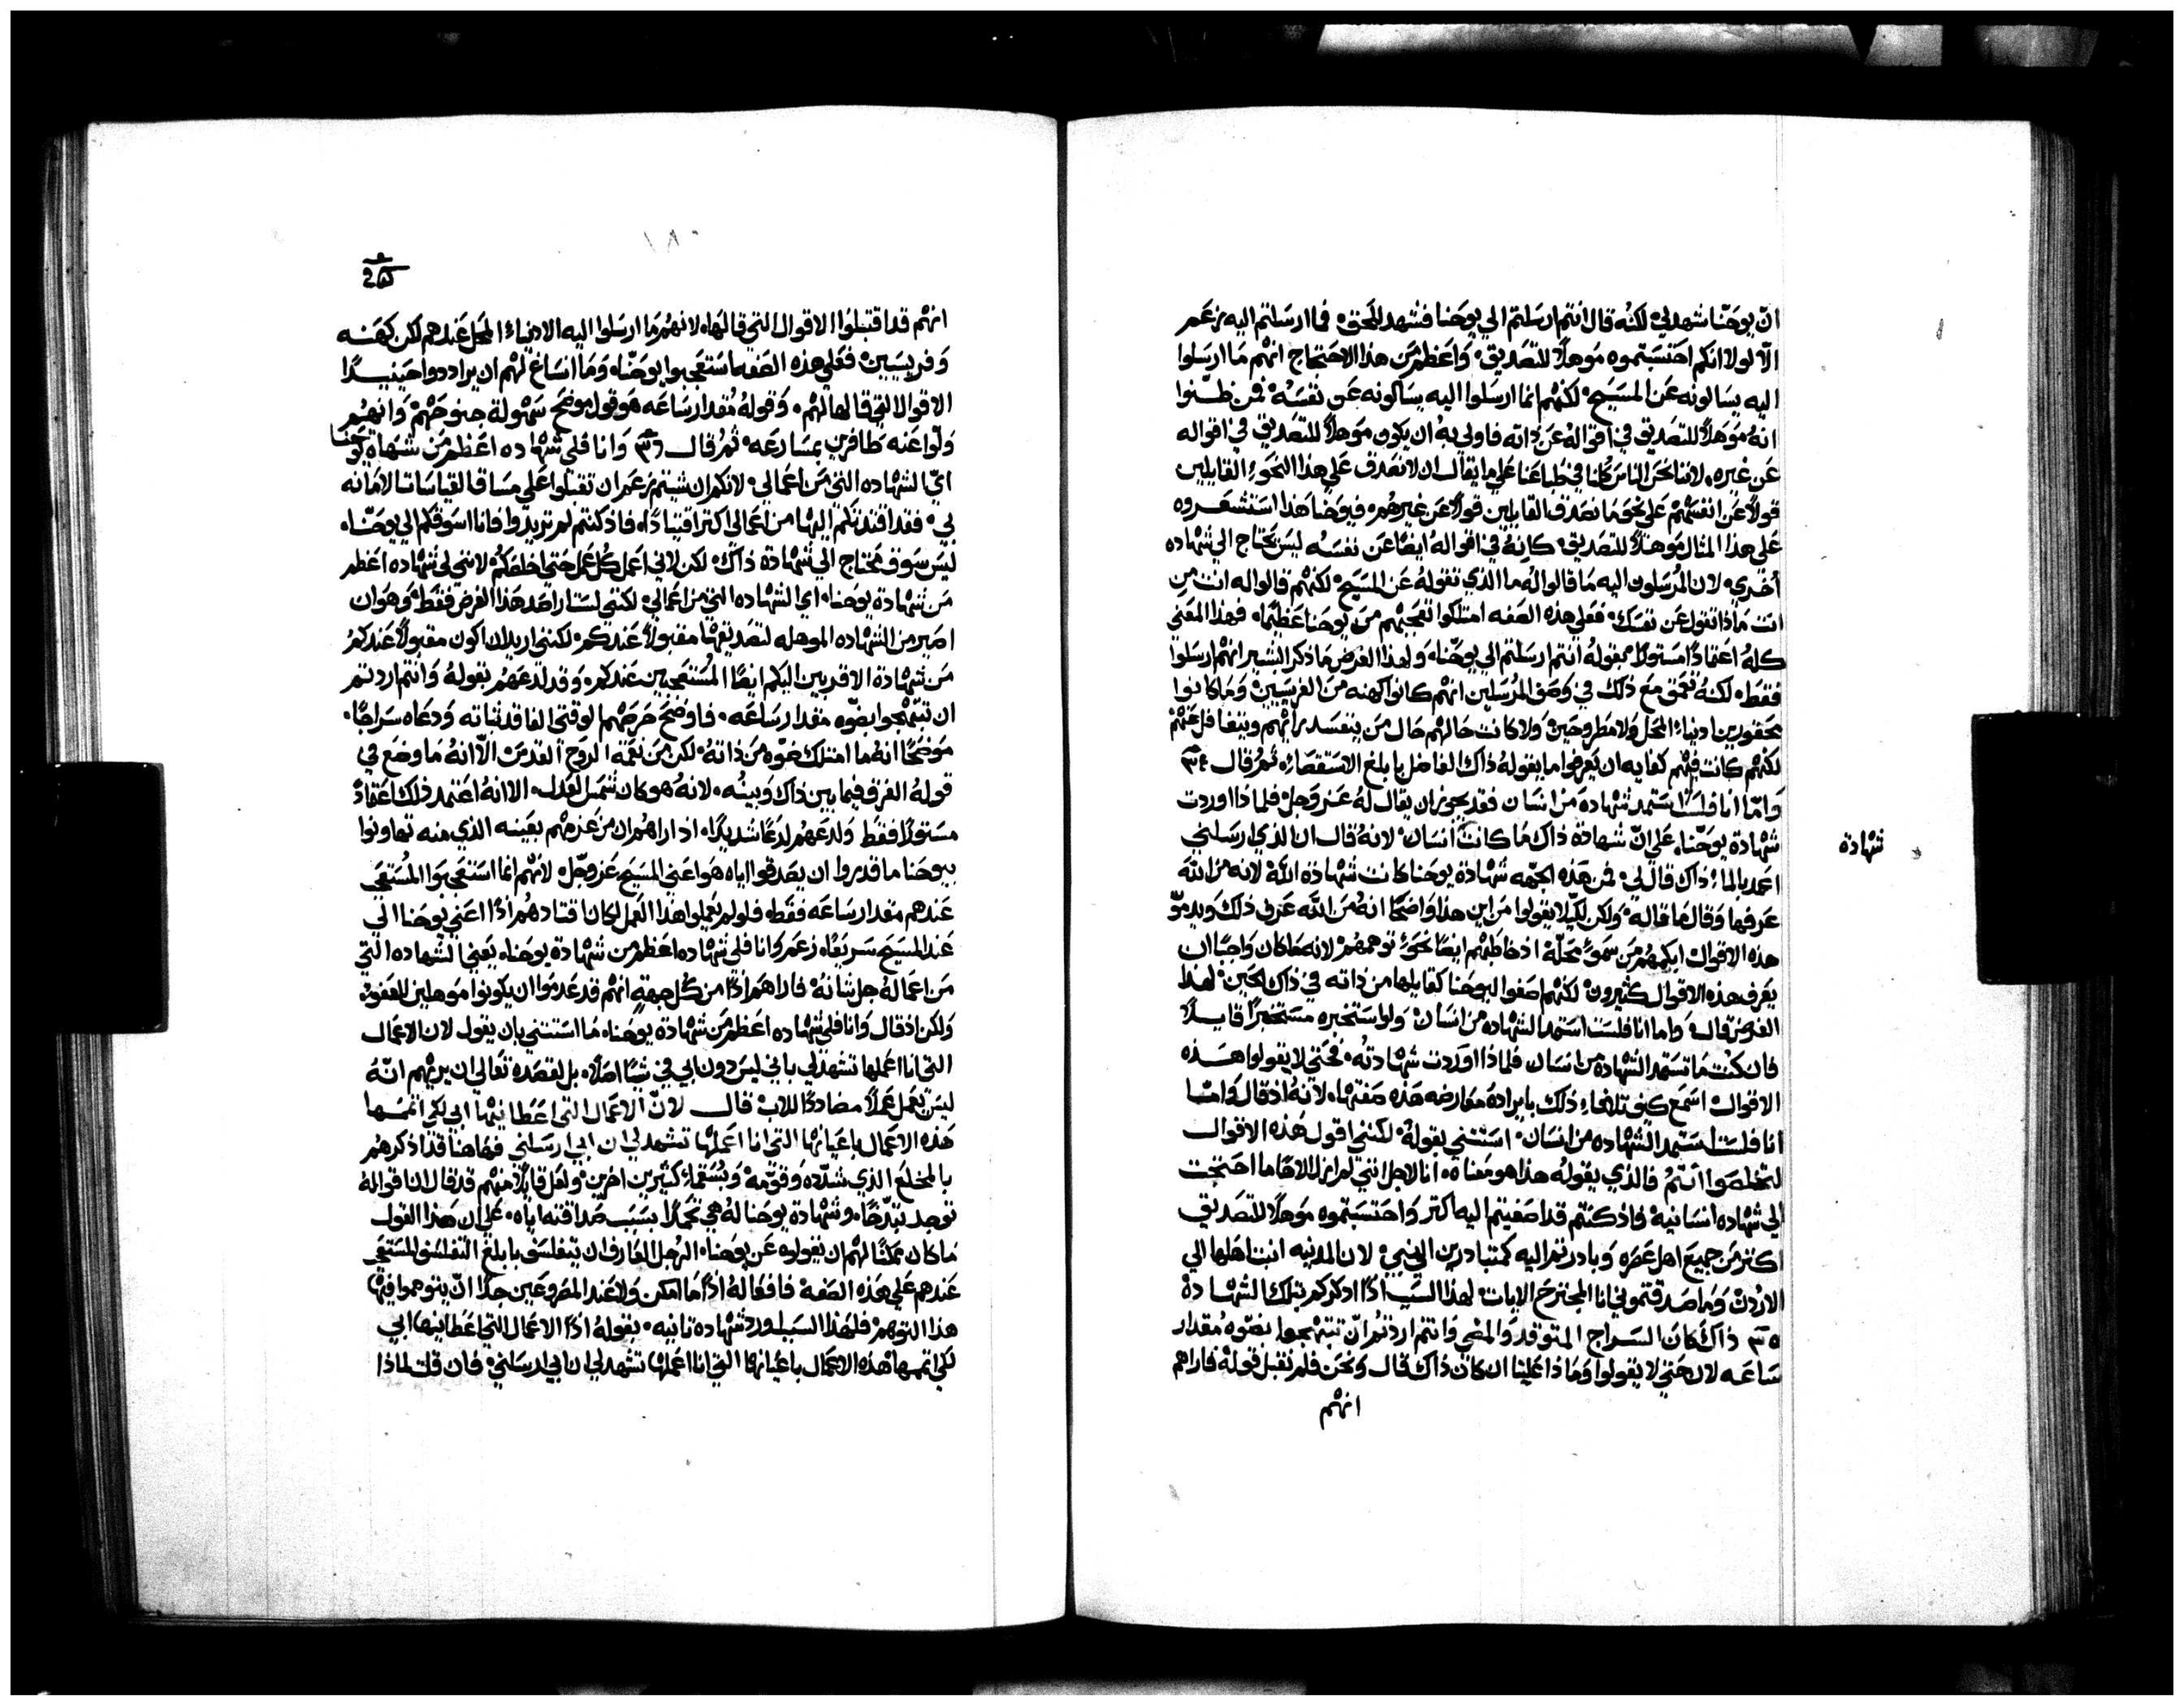 انّ يوحّنا شهد لي لكنّه قال انتم ارسلتم الي يوحنا فشهد للحق فما ارسلتم اليه زعم
الّا لولا انكم احتسبتموه موهلاً للتصديق واعظم من هذا الاحتجاج انهم ما ارسلوا
اليه يسالونه عن المسيح لكنهم انما ارسلوا اليه يسالونه عن نفسه فمن ظنّوا
انه موهلاً للتصديق في اقواله عن ذاته فاولي به ان يكون موهلاً للتصديق في اقواله
عن غيره لاننا نحن الناس كلنا في طباعنا علي ما يقال ان لا نصدق علي هذا النحو القايلين
قولاً عن انفسهم علي نحو ما نصدق القايلين قولاً عن غيرهم فيوحنا هذا استشعروه
علي هذا المثال موهلاً للتصديق كانه في اقواله ايضاً عن نفسه ليس يحتاج الي شهاده
اخري لان المرسلون اليه ما قالوا له ما الذي تقوله عن المسيح لكنهم قالوا له انت من
انت ماذا تقول عن نفسك فعلي هذه الصفه امتلكوا تعجبهم من يوحنا عظيما فهذا المعني
كله اعتماداً مستولا بقوله انتم ارسلتم الي يوحنّا ولهذا الغرض ما ذكر البشير انهم ارسلوا
فقط لكنه تعمق مع ذلك في وصف المرسلين انهم كانوا كهنه من الفريسيين وما كانوا
محقورين ادنياء المحل ولا مطروحين ولا كانت حالهم حال من ينفسد برايهم ويتغافل عنهم
لكنهم كانت فيهم كفايه ان يعرفوا ما يقوله ذاك الفاضل بابلغ الاستقصاء ثم قال ٣٤
وامّا انا فلست استمد شهاده من انسان فقد يجوز ان يقال له عز وجل فلماذا اوردت
شهادة يوحّنا علي انّ شهادة ذاك ما كانت انسان لانه قال ان الذي ارسلني
شهادة
اعمد بالماء ذاك قال لي فمن هذه الجهه شهادة يوحنا كانت شهادة الله لانه من الله
عرفها وقال ما قاله ولكن لكيلا يقولوا من اين هذا واضحاً انه من الله عرف ذلك ويدمّو
هذه الاقوال ابكمهم من سمو محلّه اذ خاطبهم ايضاً نحو توهمهم لانه ما كان واجباً ان
يعرف هذه الاقوال كثيرون لكنهم اصغوا اليوحنا كقايلها من ذاته في ذاك الحين لهذا
الغرض قال واما انا فلست استمد الشهاده من انسان ولو استخبره مستخبراً قايلاً
فان كنت ما تستمد الشهاده من انسان فلماذا اوردت شهادته فحتي لا يقولوا هذه
الاقوال اسمع كيف تلافا ذلك بايراده معارضه هذه صفتها لانه اذ قال وامّا
انا فلست استمد الشهاده من انسان استثني بقوله لكنني اقول هذه الاقوال
لتخلصوا انتم فالذي يقوله هذا هو معناه انا لاجل انني لم ازل الاهاً ما احتجت
الي شهاده انسانيه فاذ كنتم قد اصغيتم اليه اكتر واحتسبتموه موهلاً للتصديق
اكتر من جميع اهل عصره وبادرتم اليه كمتبادرين الي نبي لان المدينه انت اهلها الي
الاردن وما صدقتموني انا المجترح الايات لهذا السبب اذاً اذكركم بتلك الشهادة
٣٥ ذاك كان السراج المتوقد والمضي وانتم اردتم انّ تبتهجوا بضوه مقدار
ساعه لان حتي لا يقولوا وماذا علينا ان كان ذاك قال ونحن فلم نقبل قوله فاراهم
انهم
١٨٠
انهم قد اقتبلوا الاقوال التي قالها لانهم ما ارسلوا اليه الادنياء المحل عندهم لكن كهنه
وفريسيين فعلي هذه الصفه استعجبوا يوحنّا وما انساغ لهم ان يراددوا حينيذاً
الاقوال التي قالها لهم وقوله مقدار ساعه هو قول موضح سهولة جنوحهم وانهم
ولّوا عنه طافرين بمسارعه ثم قال ٣٦ وانا فلي شهاده اعظم من شهادة يوحنا
ايّ الشهاده التي من اعمالي لانكم ان شيتم زعم ان تقبلوا علي مساق القياسات الامانه
بي فقد اقتدتكم اليها من اعمالي اكتر اقتياداً فاذ كنتم لم تريدوا فانا اسوقكم الي يوحنّا
ليس سوف محتاج الي شهادة ذاك لكن لاني اعمل كل عمل حتي اخلصكم لانني لي شهاده اعظم
من شهادة يوحنا اي الشهاده التي من اعمالي لكنني لست اراصد هذا الغرض فقط وهو ان
اصير من الشهاده الموهله لتصديقها مقبولاً عندكم لكنني اريد ان اكون مقبولاً عندكم
من شهادة الاقربين اليكم ايضاً المستعجبين عندكم وقد لدعهم بقوله وانتم اردتم
ان تبتهجوا بضوه مقدار ساعه فاوضح حرصهم الوقتي الفاقد ثباته ودعاه سراجاً
موضحاً انه ما امتلك ضوه من ذاته لكن من نعمة الروح القدس الّا انه ما وضع في
قوله الفرق فيما بين ذاك وبينه لانه هو كان شمس العدل الا انه اعتمد ذلك اعتماداً
مستولاً فقط ولدعهم لدعاً شديداً اذ اراهم ان من عزمهم بعينه الذي منه تهاونوا
بيوحنا ما قدروا ان يصدقوا اياه هو اعني المسيح عز وجلّ لانهم انما استعجبوا المستعجب
عندهم مقدار ساعه فقط فلو لم يعملوا هذا العمل لكان اقتادهم اذاً اعني يوحنا الي
عند المسيح سريعاً زعم وانا فلي شهاده اعظم من شهادة يوحنا يعني الشهاده التي
من اعماله جل شانه فاراهم اذاً من كل جهةٍ انهم قد عدموا ان يكونوا موهلين للعفو
ولكن اذ قال وانا فلي شهاده اعظم من شهادة يوحنا ما استثني بان يقول لان الاعمال
التي انا اعملها تشهد لي باني ليس دون ابي في شياً اصلاً بل لقصده تعالي ان يريهم انّه
ليس يعمل عملاً مضادداً للاب قال لانّ الاعمال التي اعطانيها ابي لكي اتمّمها
هذه الاعمال باعيانها التي انا اعملها تشهد لي ان ابي ارسلني فهاهنا قد اذكرهم
بالمخلع الذي شدّده وقوّمه وبشفاء كثيرين اخرين ولعل قايلاً منهم قد قال ان اقواله
توجد تبدّخاً وشهادة يوحنا له هي تجملاً بسبب صداقته اياه علي ان هذا القول
ما كان ممكناً لهم ان يقولوه عن يوحنا الرجل العارف ان يتفلسف بابلغ التفلسف المستعجب
عندهم علي هذه الصفه فافعاله اذاً ما امكن ولا عند المصروعين جداً انّ يتوهموا فيها
هذا التوهم فلهذا السبب اورد شهاده تانيه بقوله اذاً الاعمال التي اعطانيها ابي
لكي اتممها هذه الاعمال باعيانها التي انا اعملها تشهد لي ان ابي ارسلني فان قلت لماذا